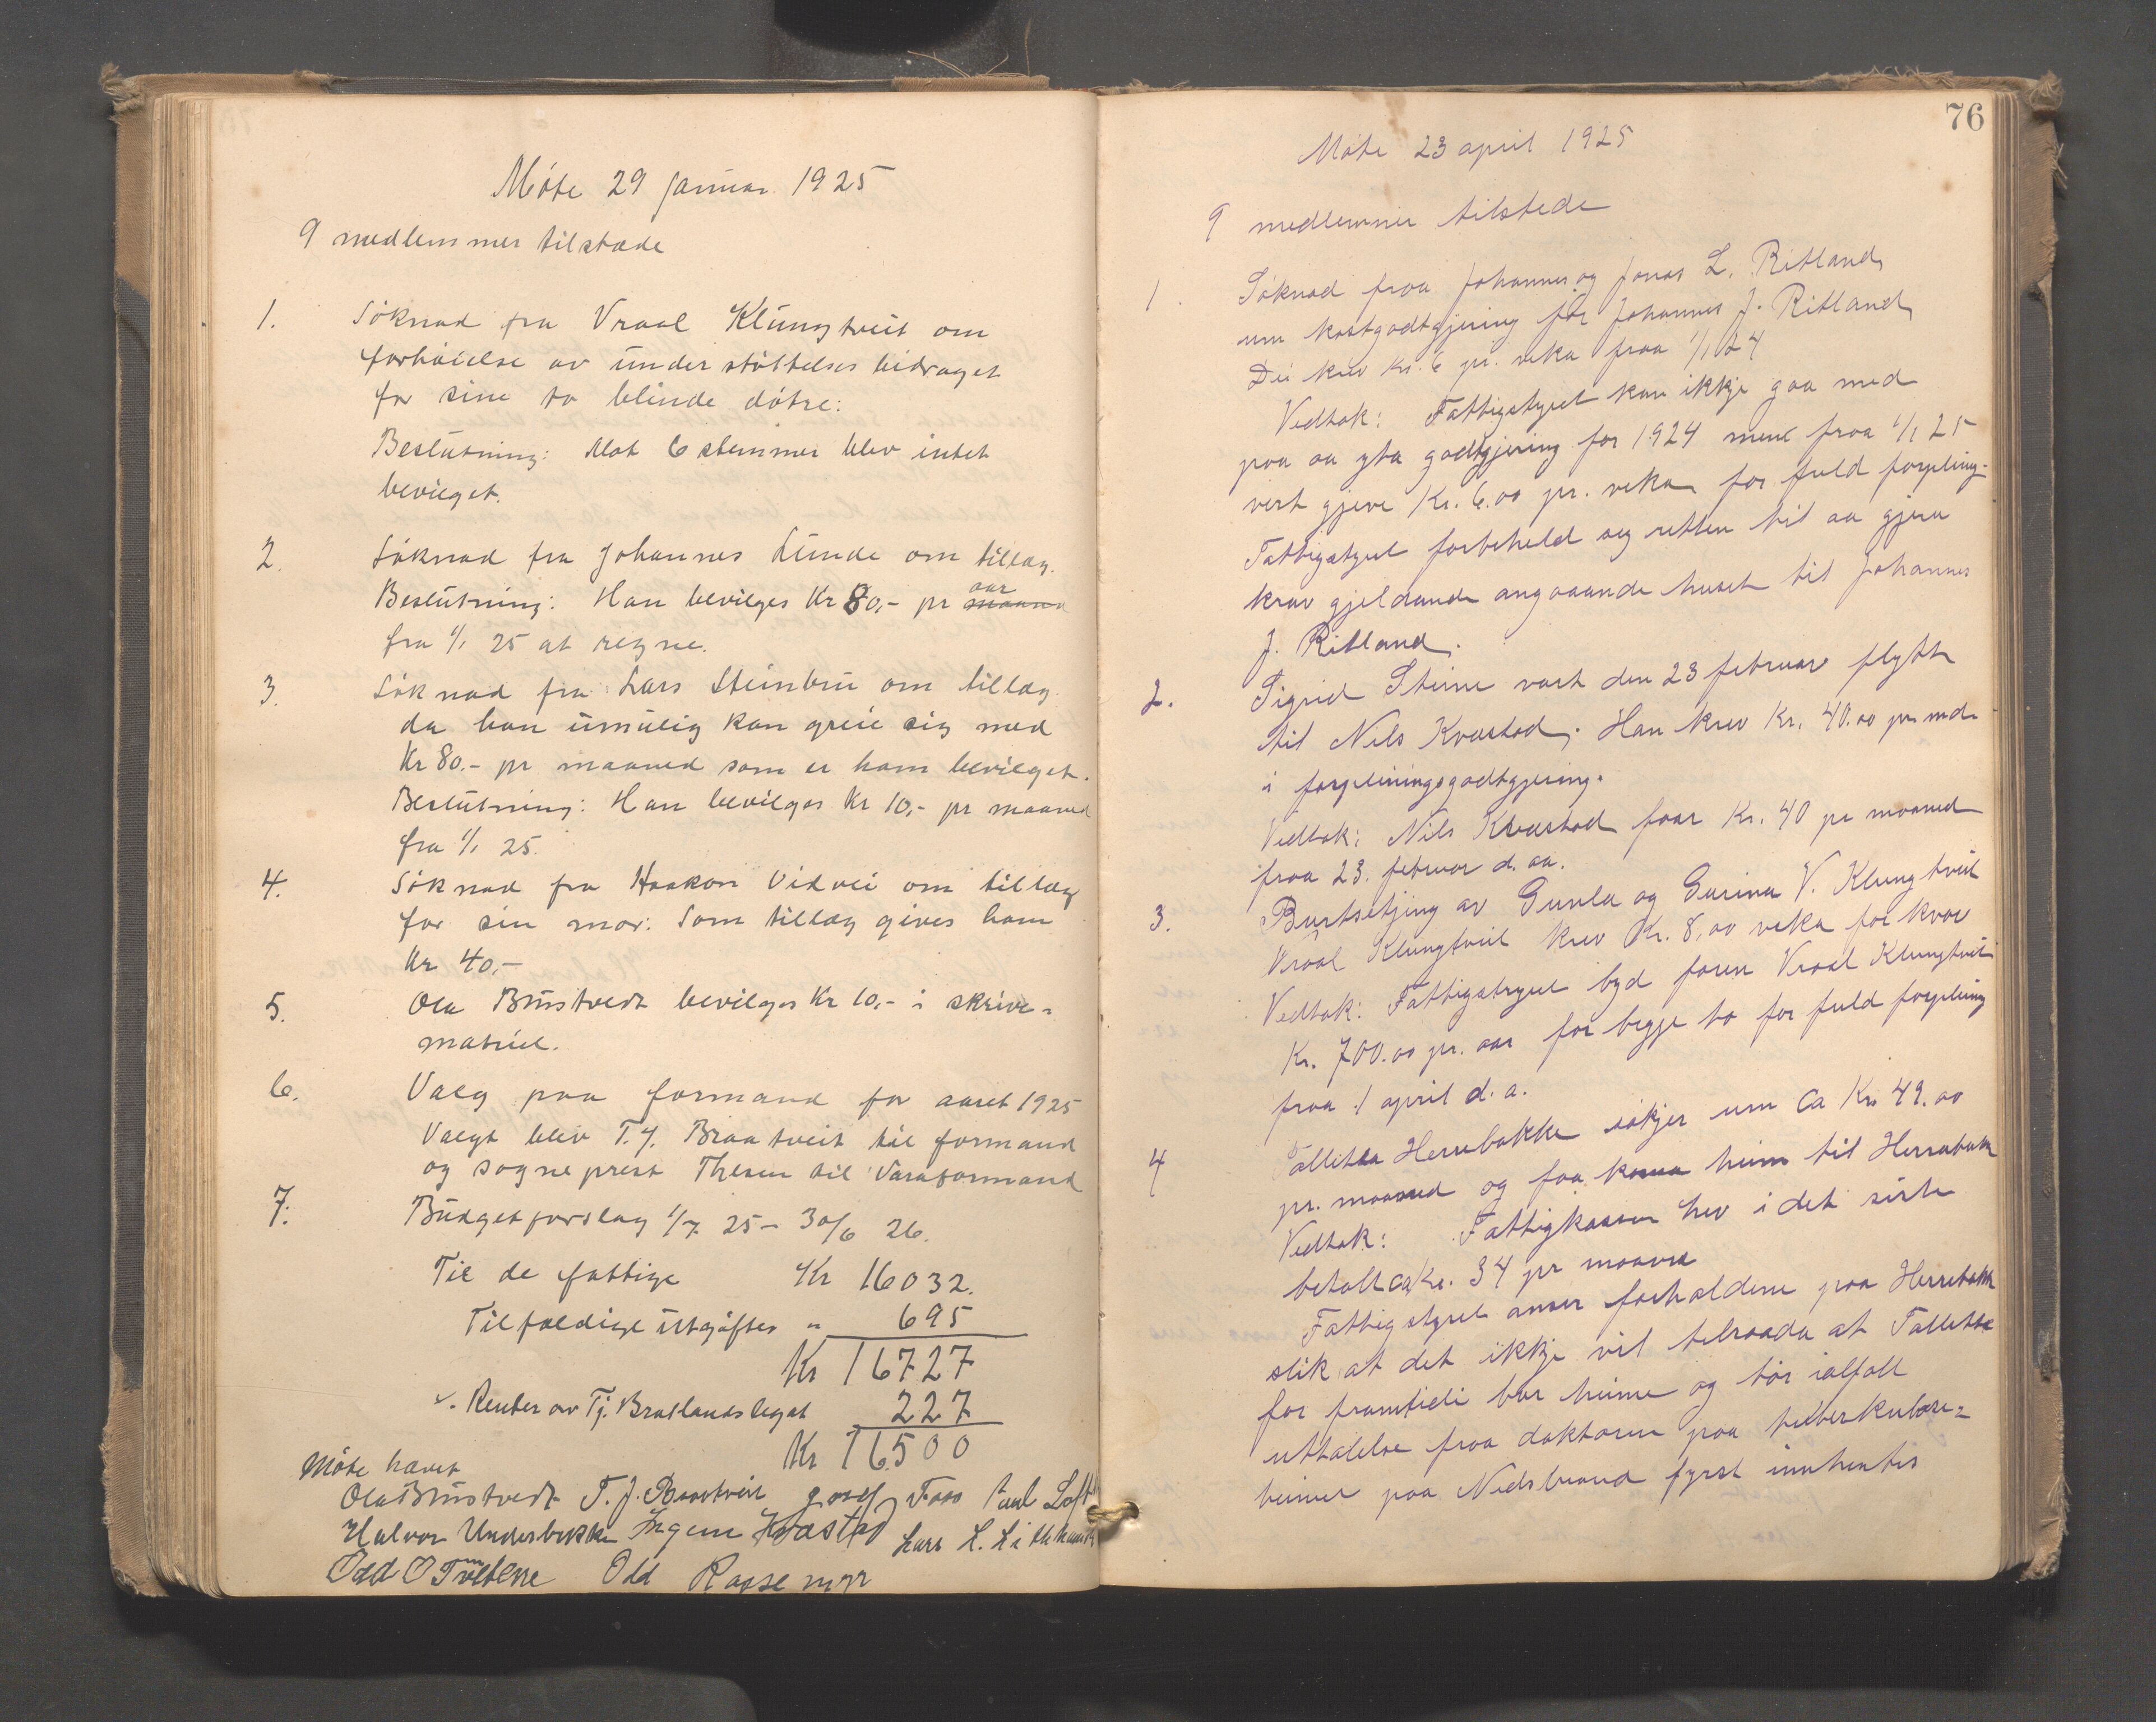 Møte 29 januar 1925
9 medlemmer tilstæde
1. Søknad fra Vraal Klungtveit om
forhøielse av understøttelses bidraget
for sine to blinde døtre:
Beslutning: Mot 6 stemmer blev intet
bevilget.
2. Søknad fra Johannes Lunde om tillæg.
Beslutning: Han bevilges Kr 80,- pr maaned aar
fra 1/1 25 at regne.
3. Søknad fra Lars Steinbru om tillæg
da han umulig kan greie sig med
Kr 80.- pr maaned som er ham bevilget.
Beslutning: Han bevilges Kr 10,- pr maaned
fra 1/1 25.
4. Søknad fra Haakon Vidvei om tillæg
for sin mor: Som tillæg gives ham
Kr 40,-
5. Ola Brustvedt bevilges Kr 10,- i skrive=
matriel.
6. Valg paa formand for aaret 1925
Valgt blev T. J. Braatveit til formand
og sogneprest Thesen til Varaformand
7. Budgetforslag 1/7 25 - 30/6 26.
Til de fattige Kr 16032.
Tilfældige utgifter " 695
Kr 16727
÷ Renter av Tj. Bratlandslegat 227
Kr 16500
Møte hævet
Ola Brustvedt T. J. Braatveit Josef Foss Paul
Halvor Underbakke Ingem Kvæstad Lars L.
Odd O Tveteræ Odd
76
Møte 23 april 1925
9 medlemmer tilstede
1. Søknad fraa Johannes og Jonas L. Ritland
um kostgodtgjering for Johannes J. Ritland
Dei krev kr. 6 pr. veka fraa 1/1 24
Vedtak: Fattigstyret kan ikkje gaa med
paa aa yta godtgjering for 1924 men fraa 1/1 25
vert gjeve Kr. 6.00 pr. veka for fuld forpleing.
Fattigstyret forbeheld seg retten til aa gjera
krav gjeldande angaaande huset til Johannes
J. Ritland.
2. Sigrid Steine vart den 23 februar flytt
til Nils Kvæstad. Han krev Kr. 40.00 pr. md.
i forpleiningsgodtgjering.
Vedtak: Nils Kvæstad faar Kr. 40 pr maaned
fraa 23. februar d. aa.
3. Burtsetjing av Gunla og Gurina V. Klungtveit
Vraal Klungtveit krev Kr. 8,00 veka for kvar
Vedtak: Fattigstyret byd faren Vraal Klungtveit
Kr. 700.00 pr. aar for begge to for fuld forpleing
fraa 1 april d. a.
4 Tallitta Herrebakke søkjer um ca Kr. 49.00
pr. maaned og faa koma heim til Herrebakk
Vedtak: Fattigkassen hev i det siste
betalt ca Kr. 34 pr maaned
Fattigstyret anser forholdene paa Herrebakk
slik at det ikkje vil tilraada at Tallitta
for framtidi bur heime og bør ialfall
uttalelse fraa doktoren paa tuberkulose=
heimen paa Nedstrand fyrst innhentes